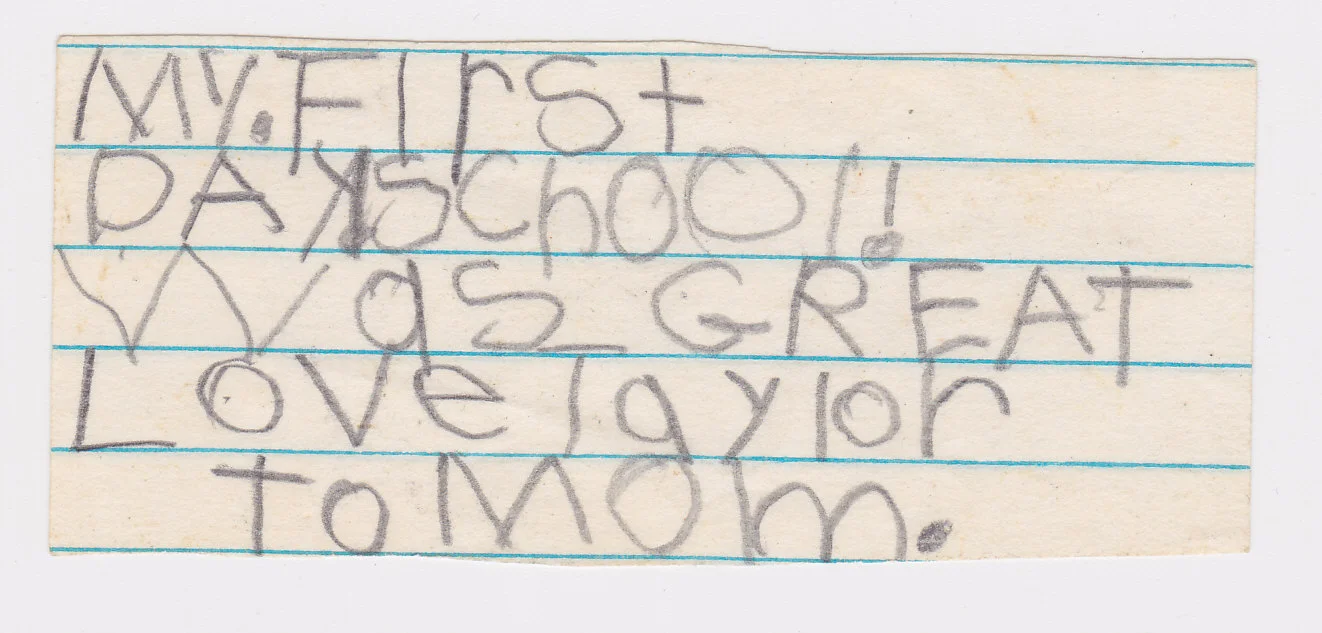 My. First
DAY SChOOl!
Was GREAT
Love Taylor
To MOm.